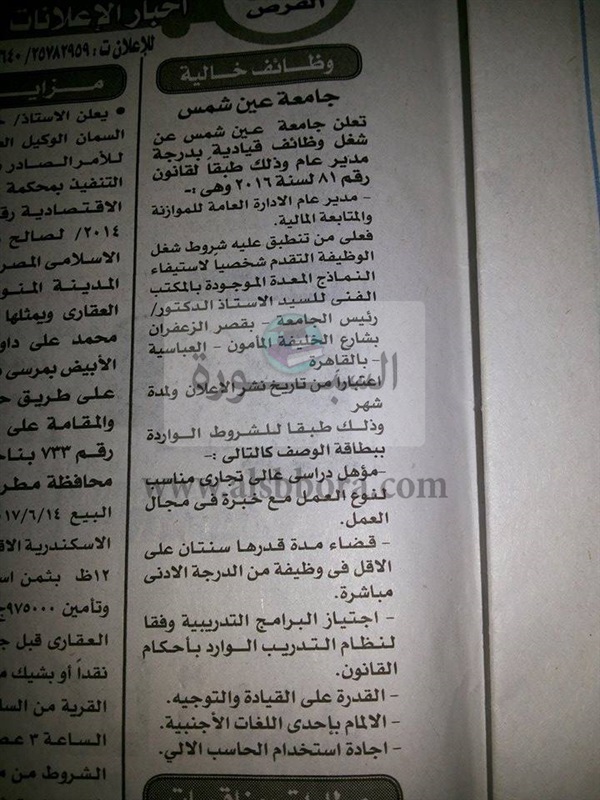 الفرص
أخبار الإعلانات
للإعلان ت: ٢٥٧٨٢٩٥٩/
وظائف خالية
جامعة عين شمس
تعلن جامعة عين شمس عن
شغل وظائف قيادية بدرجة
مدير عام وذلك طبقاً لقانون
رقم ٨١ لسنة ٢٠١٦ وهى :-
- مدير عام الادارة العامة للموازنة
والمتابعة المالية.
فعلى من تنطبق عليه شروط شغل
الوظيفة التقدم شخصياً لاستيفاء
النماذج المعدة الموجودة بالمكتب
الفنى للسيد الاستاذ الدكتور/
رئيس الجامعة - بقصر الزعفران
بشارع الخليفة المأمون - العباسية
- بالقاهرة
اعتباراً من تاريخ نشر الاعلان ولمدة
شهر
وذلك طبقا للشروط الواردة
ببطاقة الوصف كالتالى :-
-مؤهل دراسى عالى تجارى مناسب
لنوع العمل مع خبرة فى مجال
العمل.
- قضاء مدة قدرها سنتان على
الاقل فى وظيفة من الدرجة الادنى
مباشرة.
- اجتياز البرامج التدريبية وفقا
لنظام التدريب الوارد بأحكام
القانون.
- القدرة على القيادة والتوجيه.
- الالمام بإحدى اللغات الأجنبية.
- اجادة استخدام الحاسب الالي.
• يعلن الاستاذ/
السمان الوكيل
للأمر الصادر
التنفيذ بمحكمة
الاقتصادية
٢٠١٤/ لصالح
الاسلامى
المدينة
العقارى ويمثلها
محمد على
الأبيض بمرسى
على طريق
والمقامة على
رقم ٧٣٣
محافظة
البيع
الاسكندرية
١٢ظ بثمن
وتأمين
العقارى قبل
نقداً أو بشيك
القرية من
الساعة ٣
الشروط من
السبورة
www.alsbbora.com